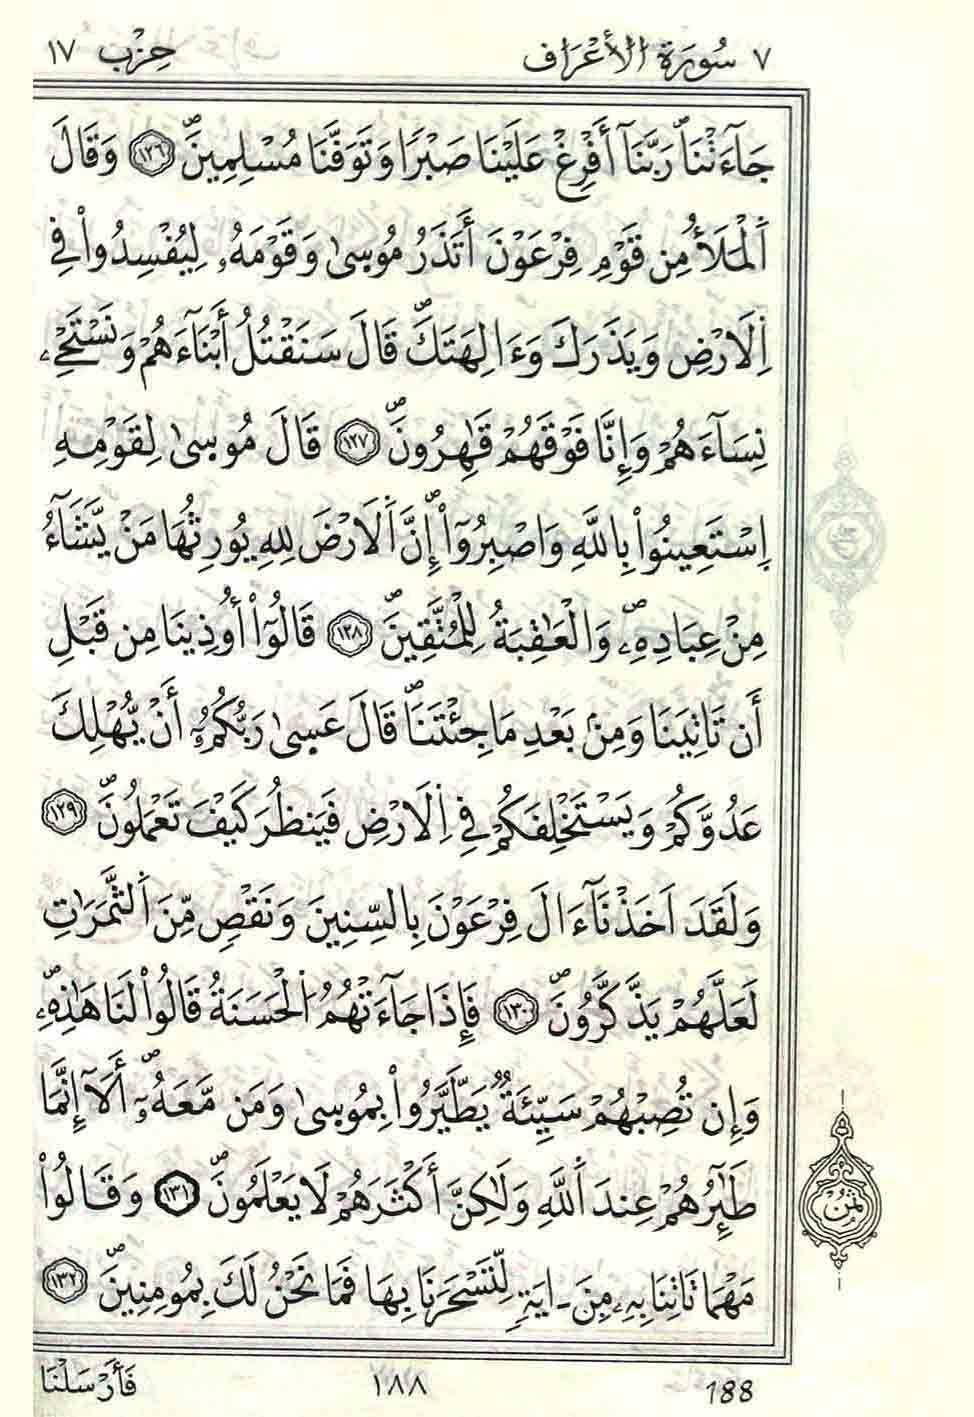 ٧ سُورَةُ الأَعْرَاف
حِزْب ١٧
جَآءَتْنَاۖ رَبَّنَآ أَفْرِغْ عَلَيْنَا صَبْرٗا وَتَوَفَّنَا مُسْلِمِينَۖ ١٢٦ وَقَالَ
اَ۬لْمَلَأُ مِن قَوْمِ فِرْعَوْنَ أَتَذَرُ مُوسىٰ وَقَوْمَهُۥ لِيُفْسِدُواْ فِے
اِ۬لَارْضِ وَيَذَرَكَ وَءَالِهَتَكَۖ قَالَ سَنَقْتُلُ أَبْنَآءَهُمْ وَنَسْتَحْيِۦ
نِسَآءَهُمْ وَإِنَّا فَوْقَهُمْ قَٰهِرُونَۖ ١٢٧ قَالَ مُوسىٰ لِقَوْمِهِ
اِ۪سْتَعِينُواْ بِاللَّهِ وَاصْبِرُوٓاْۖ إِنَّ اَ۬لَارْضَ لِلهِ يُورِثُهَا مَنْ يَّشَآءُ
مِنْ عِبَادِهِۦۖ وَالْعَٰقِبَةُ لِلْمُتَّقِينَۖ ١٢٨ قَالُوٓاْ أُوذِينَا مِن قَبْلِ
أَن تَاتِيَنَا وَمِنۢ بَعْدِ مَا جِئْتَنَاۖ قَالَ عَسىٰ رَبُّكُمُۥٓ أَنْ يُّهْلِكَ
عَدُوَّكُمْ وَيَسْتَخْلِفَكُمْ فِے اِ۬لَارْضِ فَيَنظُرَ كَيْفَ تَعْمَلُونَۖ ١٢٩
وَلَقَدَ اَخَذْنَآ ءَالَ فِرْعَوْنَ بِالسِّنِينَ وَنَقْصٖ مِّنَ اَ۬لثَّمَرَٰتِ
لَعَلَّهُمْ يَذَّكَّرُونَۖ ١٣٠ فَإِذَا جَآءَتْهُمُ اُ۬لْحَسَنَةُ قَالُواْ لَنَا هَٰذِهِۦۖ
وَإِن تُصِبْهُمْ سَيِّئَةٞ يَطَّيَّرُواْ بِمُوسىٰ وَمَن مَّعَهُۥٓۖ أَلَآ إِنَّمَا
طَٰٓئِرُهُمْ عِندَ اَ۬للَّهِ وَلَٰكِنَّ أَكْثَرَهُمْ لَا يَعْلَمُونَۖ ١٣١ وَقَالُواْ
ثُمُن
مَهْمَا تَاتِنَا بِهِۦ مِنَ ـ ايَةٖ لِّتَسْحَرَنَا بِهَا فَمَا نَحْنُ لَكَ بِمُومِنِينَۖ ١٣٢
188
١٨٨
فَأَرْسَلْنَا